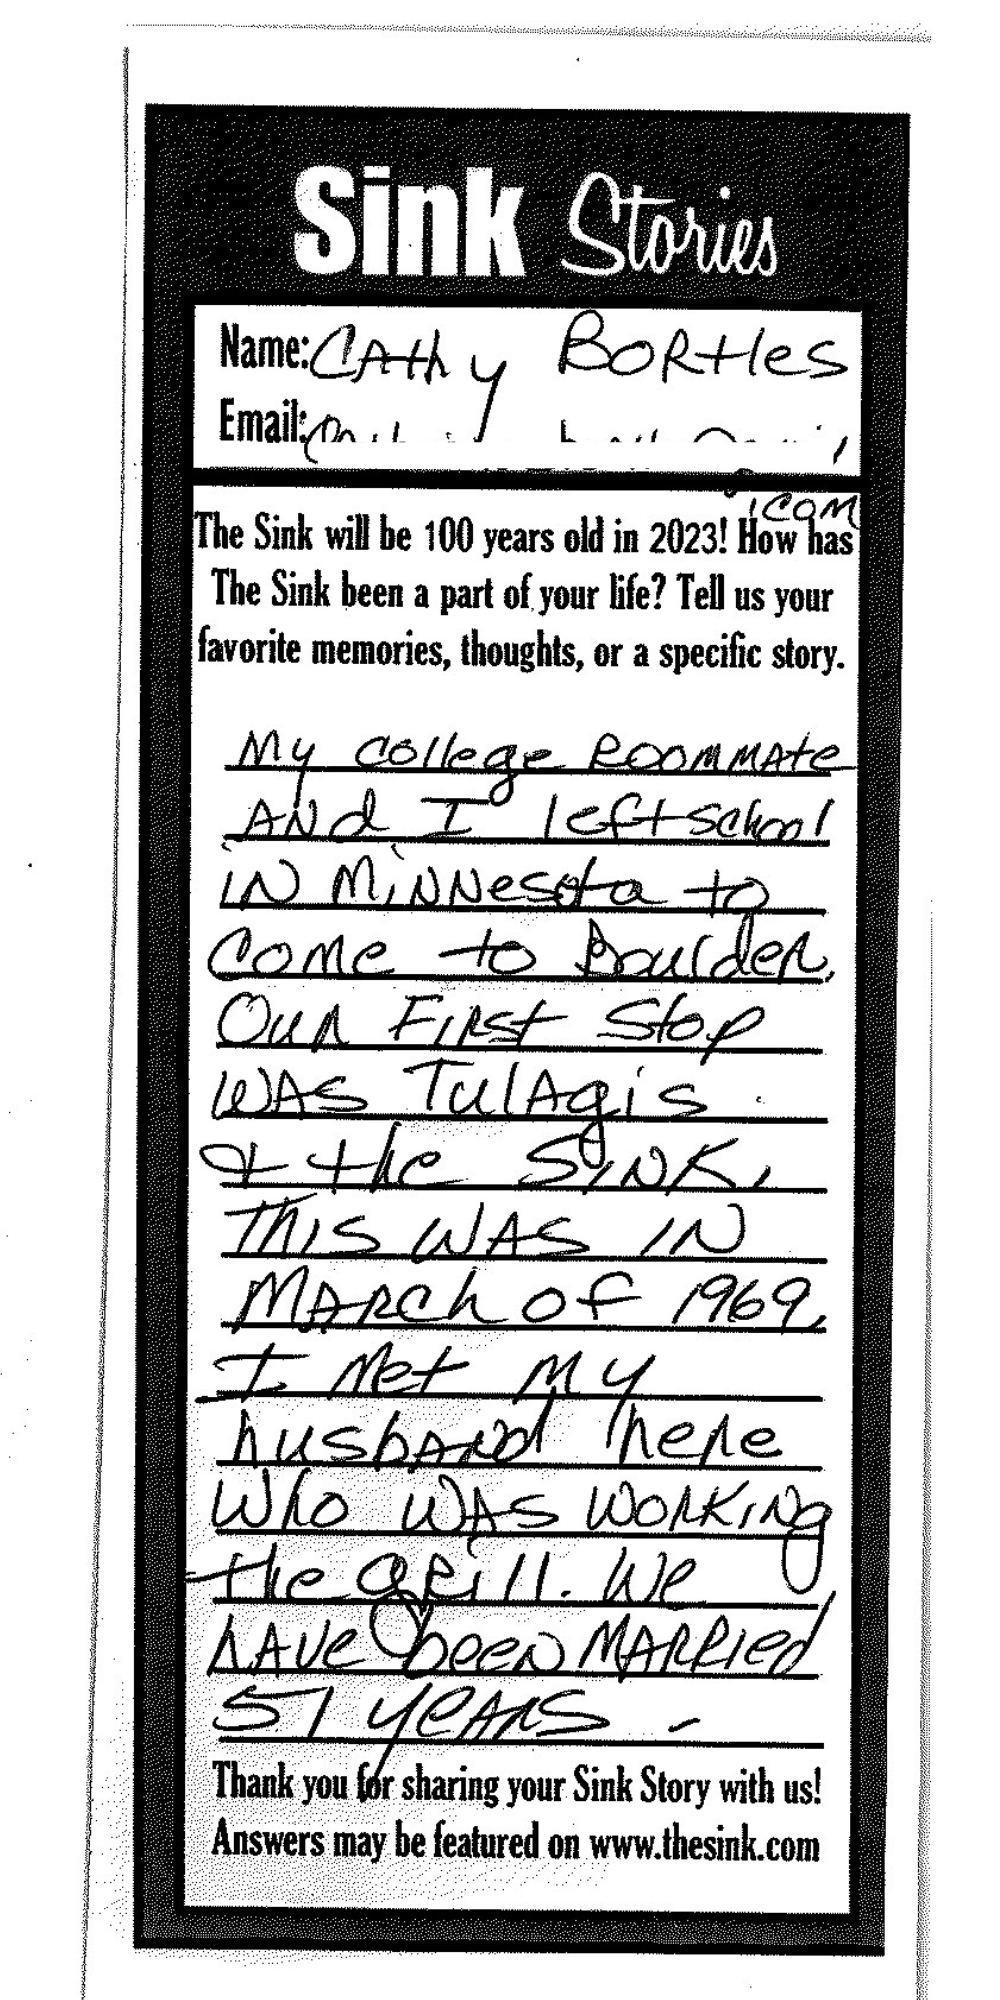 Sink Stories
Name: CAthy BORtles
Email:
.com
The Sink will be 100 years old in 2023! How has
The Sink been a part of your life? Tell us your
favorite memories, thoughts, or a specific story.
My college ROOMMAte
ANd I left school
iN MiNNesota to
COMe to Boulder.
OUR FIRSt Stop
WAS TulAgis
& the SiNK,
THIS WAS IN
MARCh of 1969.
I Met My
husbANd here
Who WAS WORKiNg
the gRill. We
hAVe beeN MARRied
51 yeARS -
Thank you for sharing your Sink Story with us!
Answers may be featured on www.thesink.com